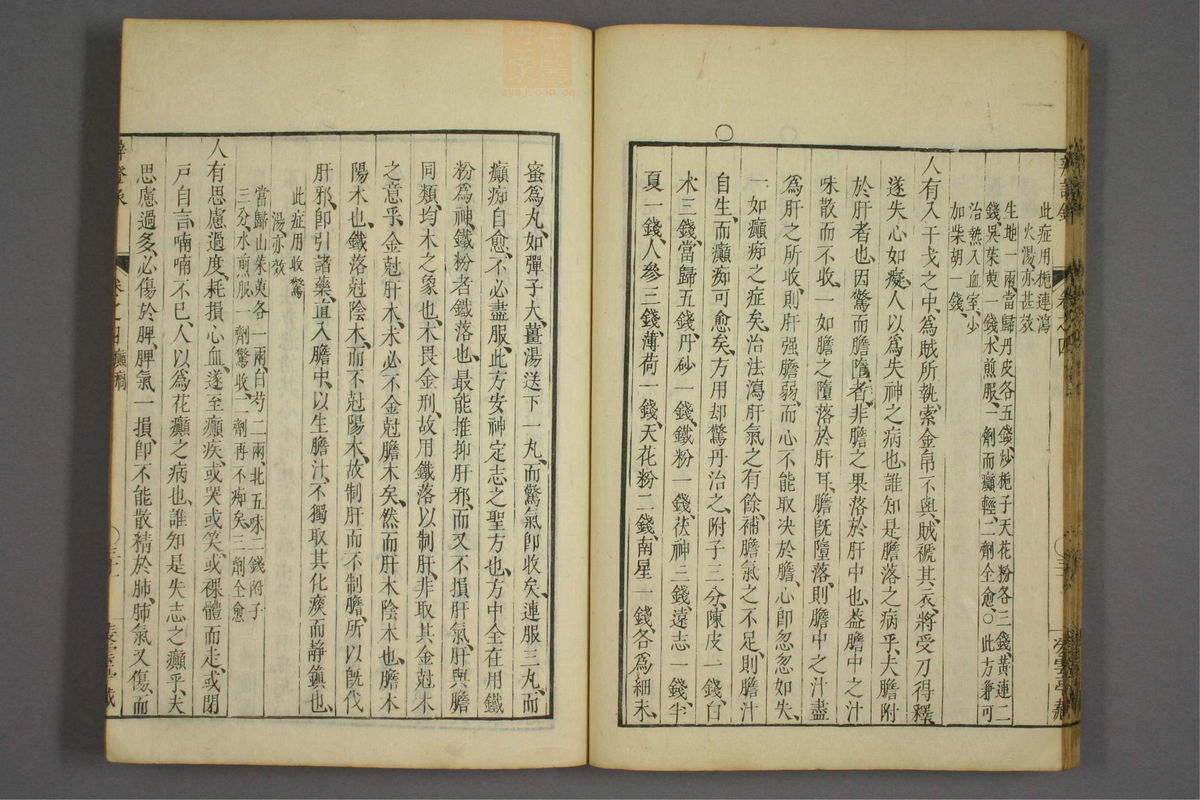 此症用梔連瀉
火湯亦甚效
生地一兩當歸丹皮各五錢炒梔子天花粉各三錢黃連二
錢吳茱萸一錢水煎服一劑而癲輕二劑全愈○此方兼可
治熱入血室少
加柴胡一錢
人有入干戈之中、爲賊所執、索金帛不與、賊褫其衣、將受刀得釋、
遂失心如癡、人以爲失神之病也、誰知是膽落之病乎、夫膽附
於肝者也、因驚而膽墮者、非膽之果落於肝中也、蓋膽之中之汁
味散而不收、一如膽之墮落於肝耳、膽既墮落、則膽中之汁盡
爲肝之所收、則肝强膽弱、而心不能取決於膽、心卽忽忽如失、
一如癲痴之症矣、治法瀉肝氣之有餘、補膽氣之不足、則膽汁
自生、而癲痴可愈矣、方用却驚丹治之、附子三分、陳皮一錢、白
术三錢、當歸五錢、丹砂一錢、鐵粉一錢、茯神三錢、遠志一錢、半
夏一錢、人參三錢、薄荷一錢、天花粉二錢、南星一錢、各爲細末、
蜜爲丸、如彈子大、薑湯送下一丸、而驚氣卽收矣、連服三丸、而
癲痴自愈、不必盡服、此方安神定志之聖方也、方中全在用鐵
粉爲神、鐵粉者鐵落也、最能推抑肝邪、而又不損肝氣、肝與膽
同類、均木之象也、木畏金刑、故用鐵落以制肝、非取其金尅木
之意乎、金尅肝木、未必不金尅膽木矣、然而肝木陰木也、膽木
陽木也、鐵落尅陰木、而不尅陽木、故制肝而不制膽、所以既伐
肝邪、卽引諸藥、直入膽中、以生膽汁、不獨取其化痰而靜鎭也、
此症用收驚
湯亦效
當歸山茱萸各一兩白芍二兩北五味二錢附子
三分水煎服一劑驚收二劑再不痴矣三劑全愈
人有思慮過度、耗損心血、遂至癲疾、或哭或笑、或裸體而走、或閉
戶自言、喃喃不已、人以爲花癲之病也、誰知是失志之癲乎、夫
思慮過多、必傷於脾、脾氣一損、卽不能散精於肺、肺氣又傷、而